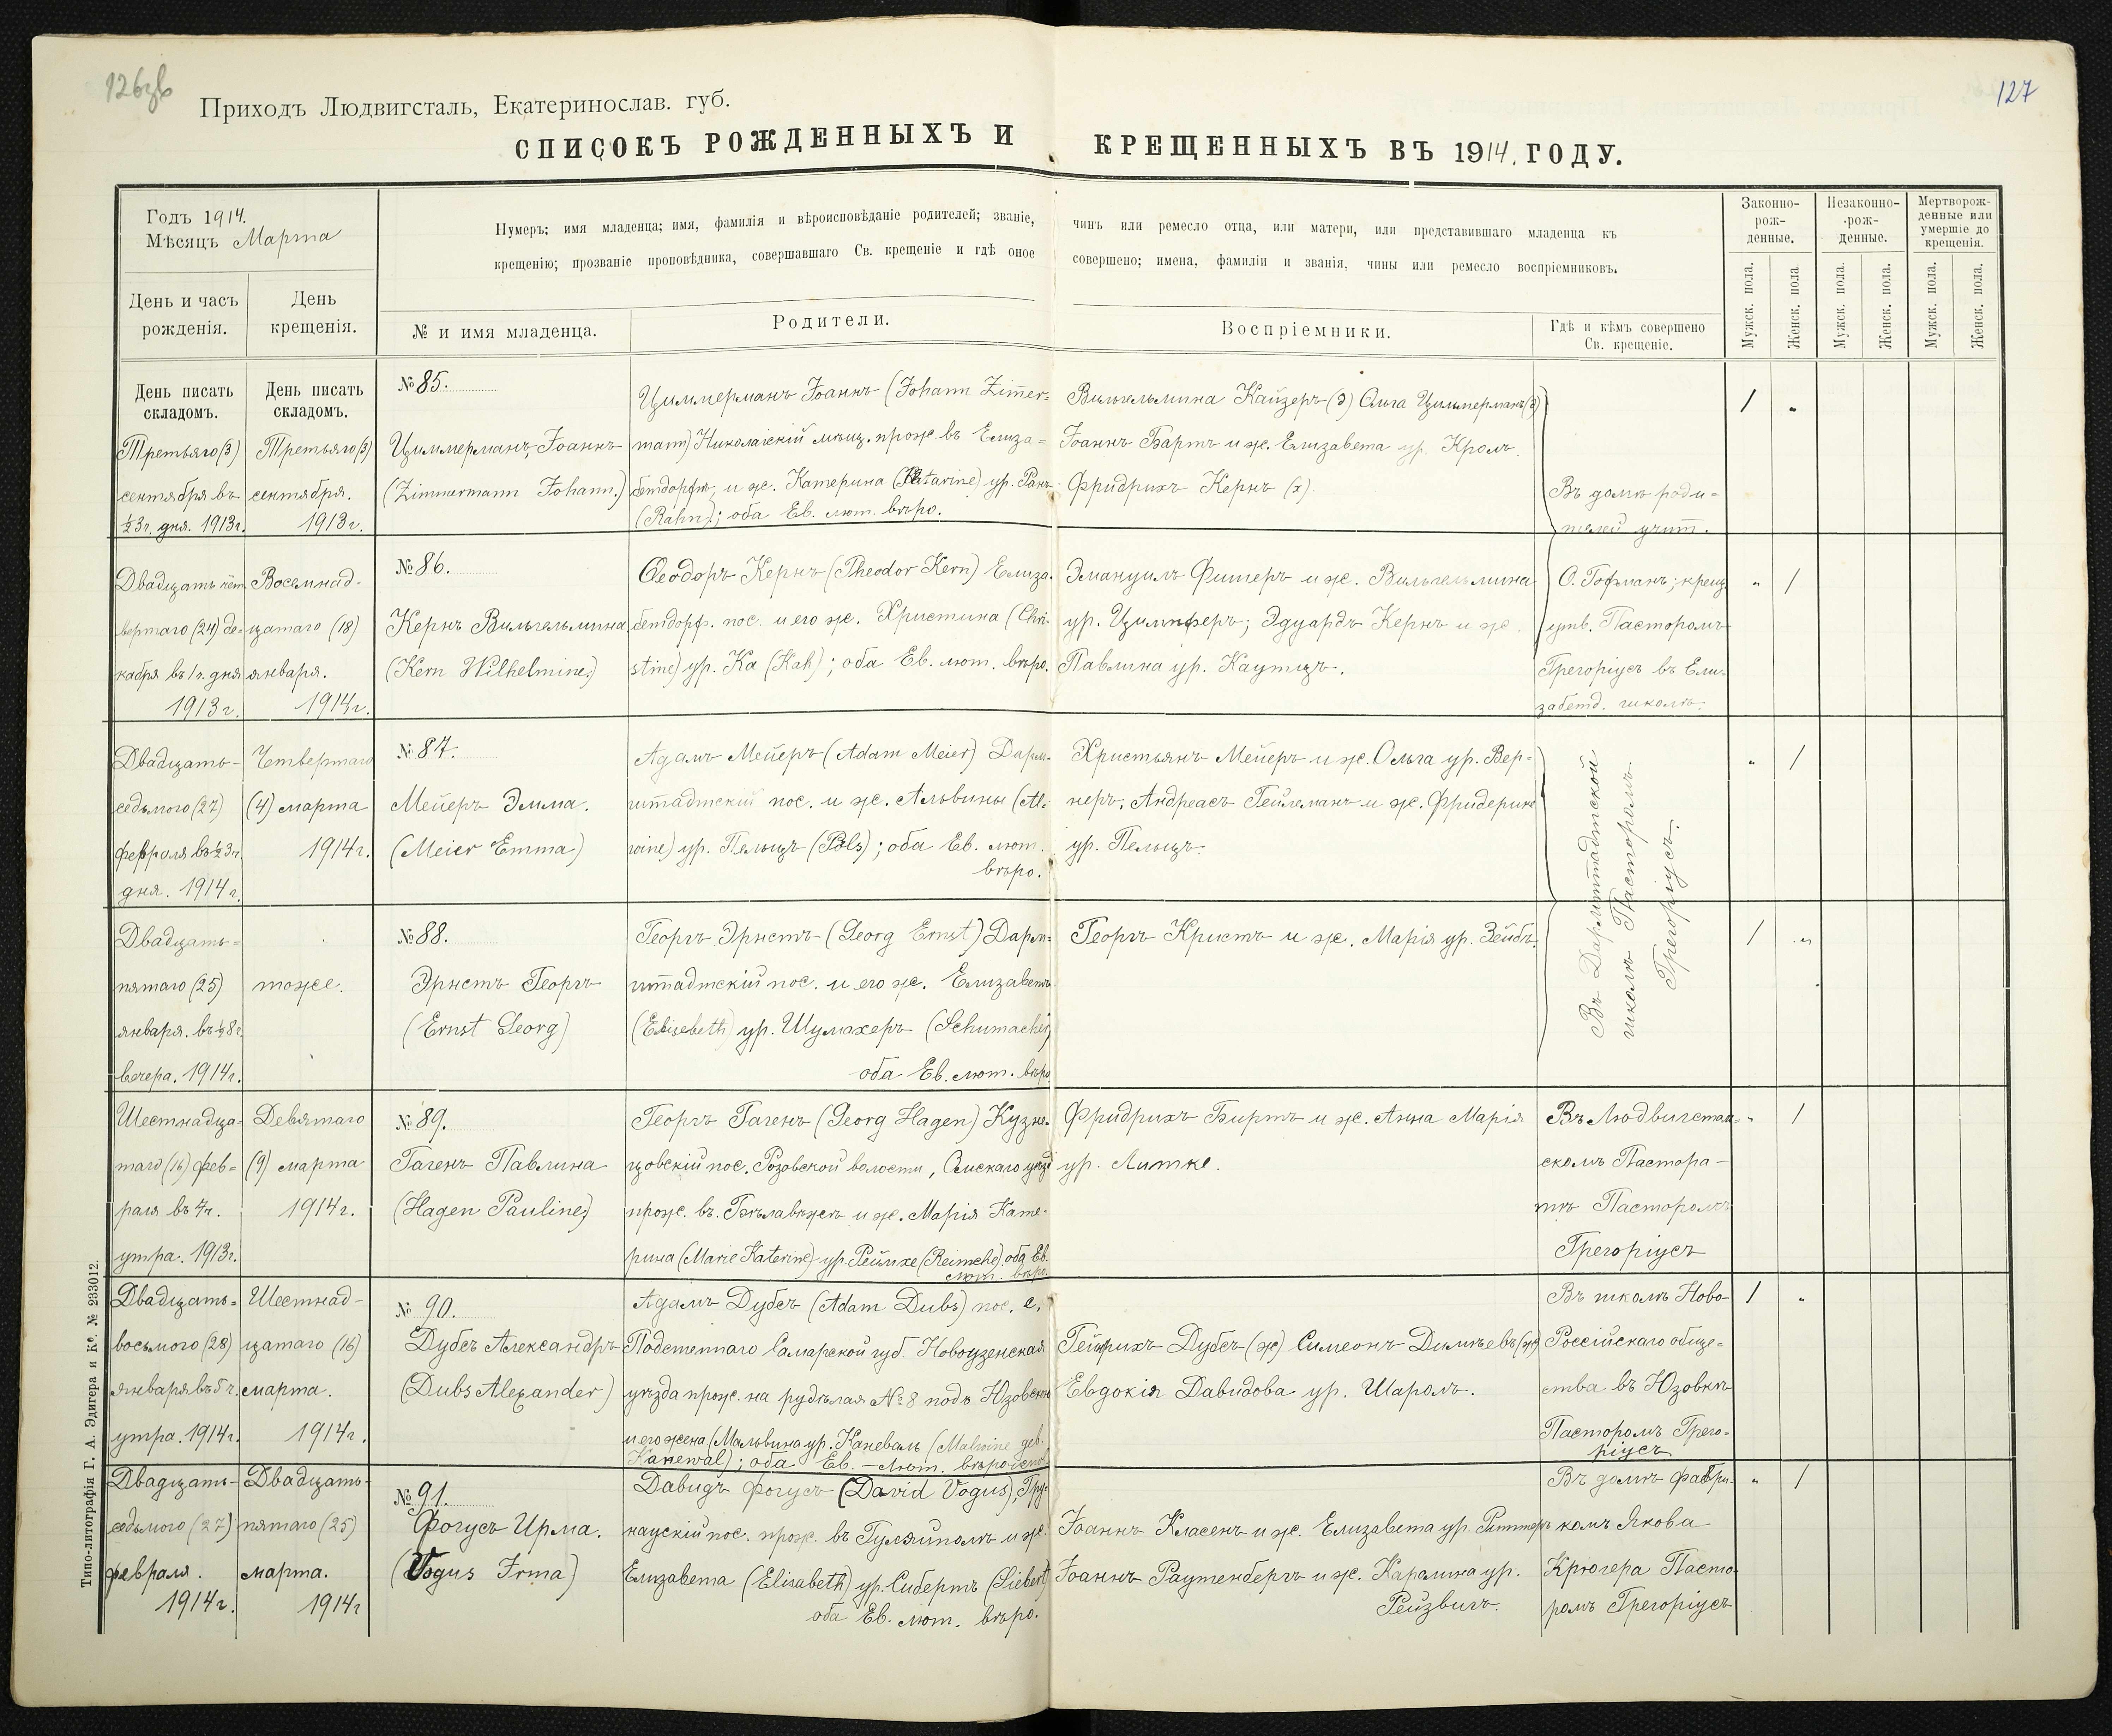 126зв
127
Приходъ Людвигсталь, Екатеринослав. губ.
СПИСОКЪ РОЖДЕННЫХЪ И КРЕЩЕННЫХЪ ВЪ 1914. ГОДУ.
Годъ 1914.
Мѣсяцъ Марта
Нумеръ; имя младенца; имя, фамилія и вѣроисповѣданіе родителей; званіе, чинъ или ремесло отца, или матери, или представившаго младенца къ
крещенію; прозваніе проповѣдника, совершавшаго Св. крещеніе и гдѣ оное совершено; имена, фамиліи и званія, чины или ремесло воспріемниковъ.
Законно-
рож-
денные.
Незаконно-
рож-
денные.
Мертворож-
денные или
умершіе до
крещенія.
День и часъ
рожденія.
День
крещенія.
№ и имя младенца.
Родители.
Воспріемники.
Гдѣ и кѣмъ совершено
Св. крещеніе.
Мужск. пола.
Женск. пола
Мужск. пола.
Женск. пола.
Мужск. пола.
Женск. пола.
День писать
складомъ.
Третьяго (3)
сентября въ
½3ч. дня. 1913г.
День писать
складомъ.
Третьяго (3)
сентября.
1913г.
№ 85.
Циммерманъ, Іоаннъ
(Zimmermann Johann.)
Циммерманъ Іоаннъ (Johann Zimer-
mann) Николаіскій мѣщ. прож. въ Елиза-
бетдорфѣ, и ж. Катерина (Katarine) ур. Ранъ
(Rahn); оба Ев. лют. вѣро.
Вильгельмина Кайзеръ (э) Ольга Цильмерманъ (э)
Іоаннъ Бартъ и ж. Елизавета ур. Кроль.
Фридрихъ Кернъ (х).
Въ домѣ роди-
телей учит.
1 "
Двадцать чет
вертаго (24) де-
кабря въ 1ч. дня
1913г.
Восемнад-
цатаго (18)
января.
1914г.
№ 86.
Кернъ Вильгельмина
(Kern Wilhelmine.)
Ѳеодоръ Кернъ (Theodor Kern) Елиза-
бетдорф. пос. и его ж. Христина (Chri-
stine) ур. Ка (Kah); оба Ев. лют. вѣро.
Эмануилъ Фишеръ и ж. Вильгельмина
ур. Цимпферъ; Эдуардъ Кернъ и ж.
Павлина ур. Каутцъ.
О. Гофманъ; крещ.
утв. Пасторомъ
Грегоріусъ въ Ели-
забетд. школѣ.
" 1
Двадцать-
седьмого (27)
февроля въ ½3ч.
дня. 1914г.
Четвертаго
(4) марта
1914г.
№ 87.
Мейеръ Эмма.
(Meier Emma)
Адамъ Мейеръ (Adam Meier) Дарм-
штадтскій пос. и ж. Альвины (Al-
wine) ур. Пельцъ (Pels); оба Ев. лют.
вѣро.
Христьянъ Мейеръ и ж. Ольга ур. Вер-
неръ. Андреасъ Гейлеманъ и ж. Фридерика
ур. Пельцъ.
Въ Дармштадтской
школѣ Пасторомъ
Грегоріусъ.
" 1
Двадцать-
пятаго (25)
января. въ ½8ч.
вечера. 1914г.
тоже.
№ 88.
Эрнстъ Георгъ
(Ernst Georg)
Георгъ Эрнстъ (Georg Ernst) Дарм-
штадтскій пос. и его ж. Елизаветъ
(Elisebeth) ур. Шумахеръ (Schumacher)
оба Ев. лют. вѣро
Георгъ Кристъ и ж. Марія ур. Зейбъ.
1 "
Шестнадца-
таго (16) фев-
раля въ 4ч.
утра. 1913г.
Девятаго
(9) марта
1914г.
№ 89.
Гагенъ Павлина
(Hagen Pauline)
Георгъ Гагенъ (Georg Hagen) Кузне-
цовскій пос. Розовской волости,
прож. въ и ж. Марія Кате-
рина (Marie Katerine) ур. Реймхе (Reimche) оба Ев.
лют. вѣро.
Фридрихъ Биртъ и ж. Анна Марія
ур. Литке.
Въ Людвигсталь-
скомъ Пастора-
тѣ Пасторомъ
Грегоріусъ
" 1
Двадцать-
восьмого (28)
января въ 5ч.
утра. 1914г.
Шестнад-
цатаго (16)
марта.
1914г.
№ 90.
Дубсъ Александръ
(Dubs Alexander)
Адамъ Дубсъ (Adam Dubs) пос. с.
Подстепнаго Самарской губ. Новоузенская
уѣзда прож. на № 8 подъ Юзовкою
и его жена (Мальвина ур. Каневаль (Malwine geb.
Kanewal); оба Ев.-Лют.
Гейнрихъ Дубсъ (ж) Симеонъ
Евдокія Давидова ур. Шароль.
Въ школѣ Ново-
Россійскаго обще-
ства въ Юзовкѣ
Пасторомъ Грего-
ріусъ
1 "
Двадцать-
седьмого (27)
февраля.
1914г.
Двадцать-
пятаго (25)
марта.
1914г
№ 91.
Фогусъ Ирма.
(Vogus Irma)
Давидъ Фогусъ (David Vogus), Гру-
наускій пос. прож. въ Гуляйполѣ и ж.
Елизавета (Elisabeth) ур. Сибертъ (Siebert)
оба Ев. лют. вѣро.
Іоаннъ Класенъ и ж. Елизавета ур.
Іоаннъ Раутенбергъ и ж. Каралина ур.
Рейзвигъ.
Въ домѣ фабри-
комъ Якова
Крюгера Пасто-
ромъ Грегоріусъ
" 1
Типо-литографія Г. А. Эдигера и Кº. № 233012.